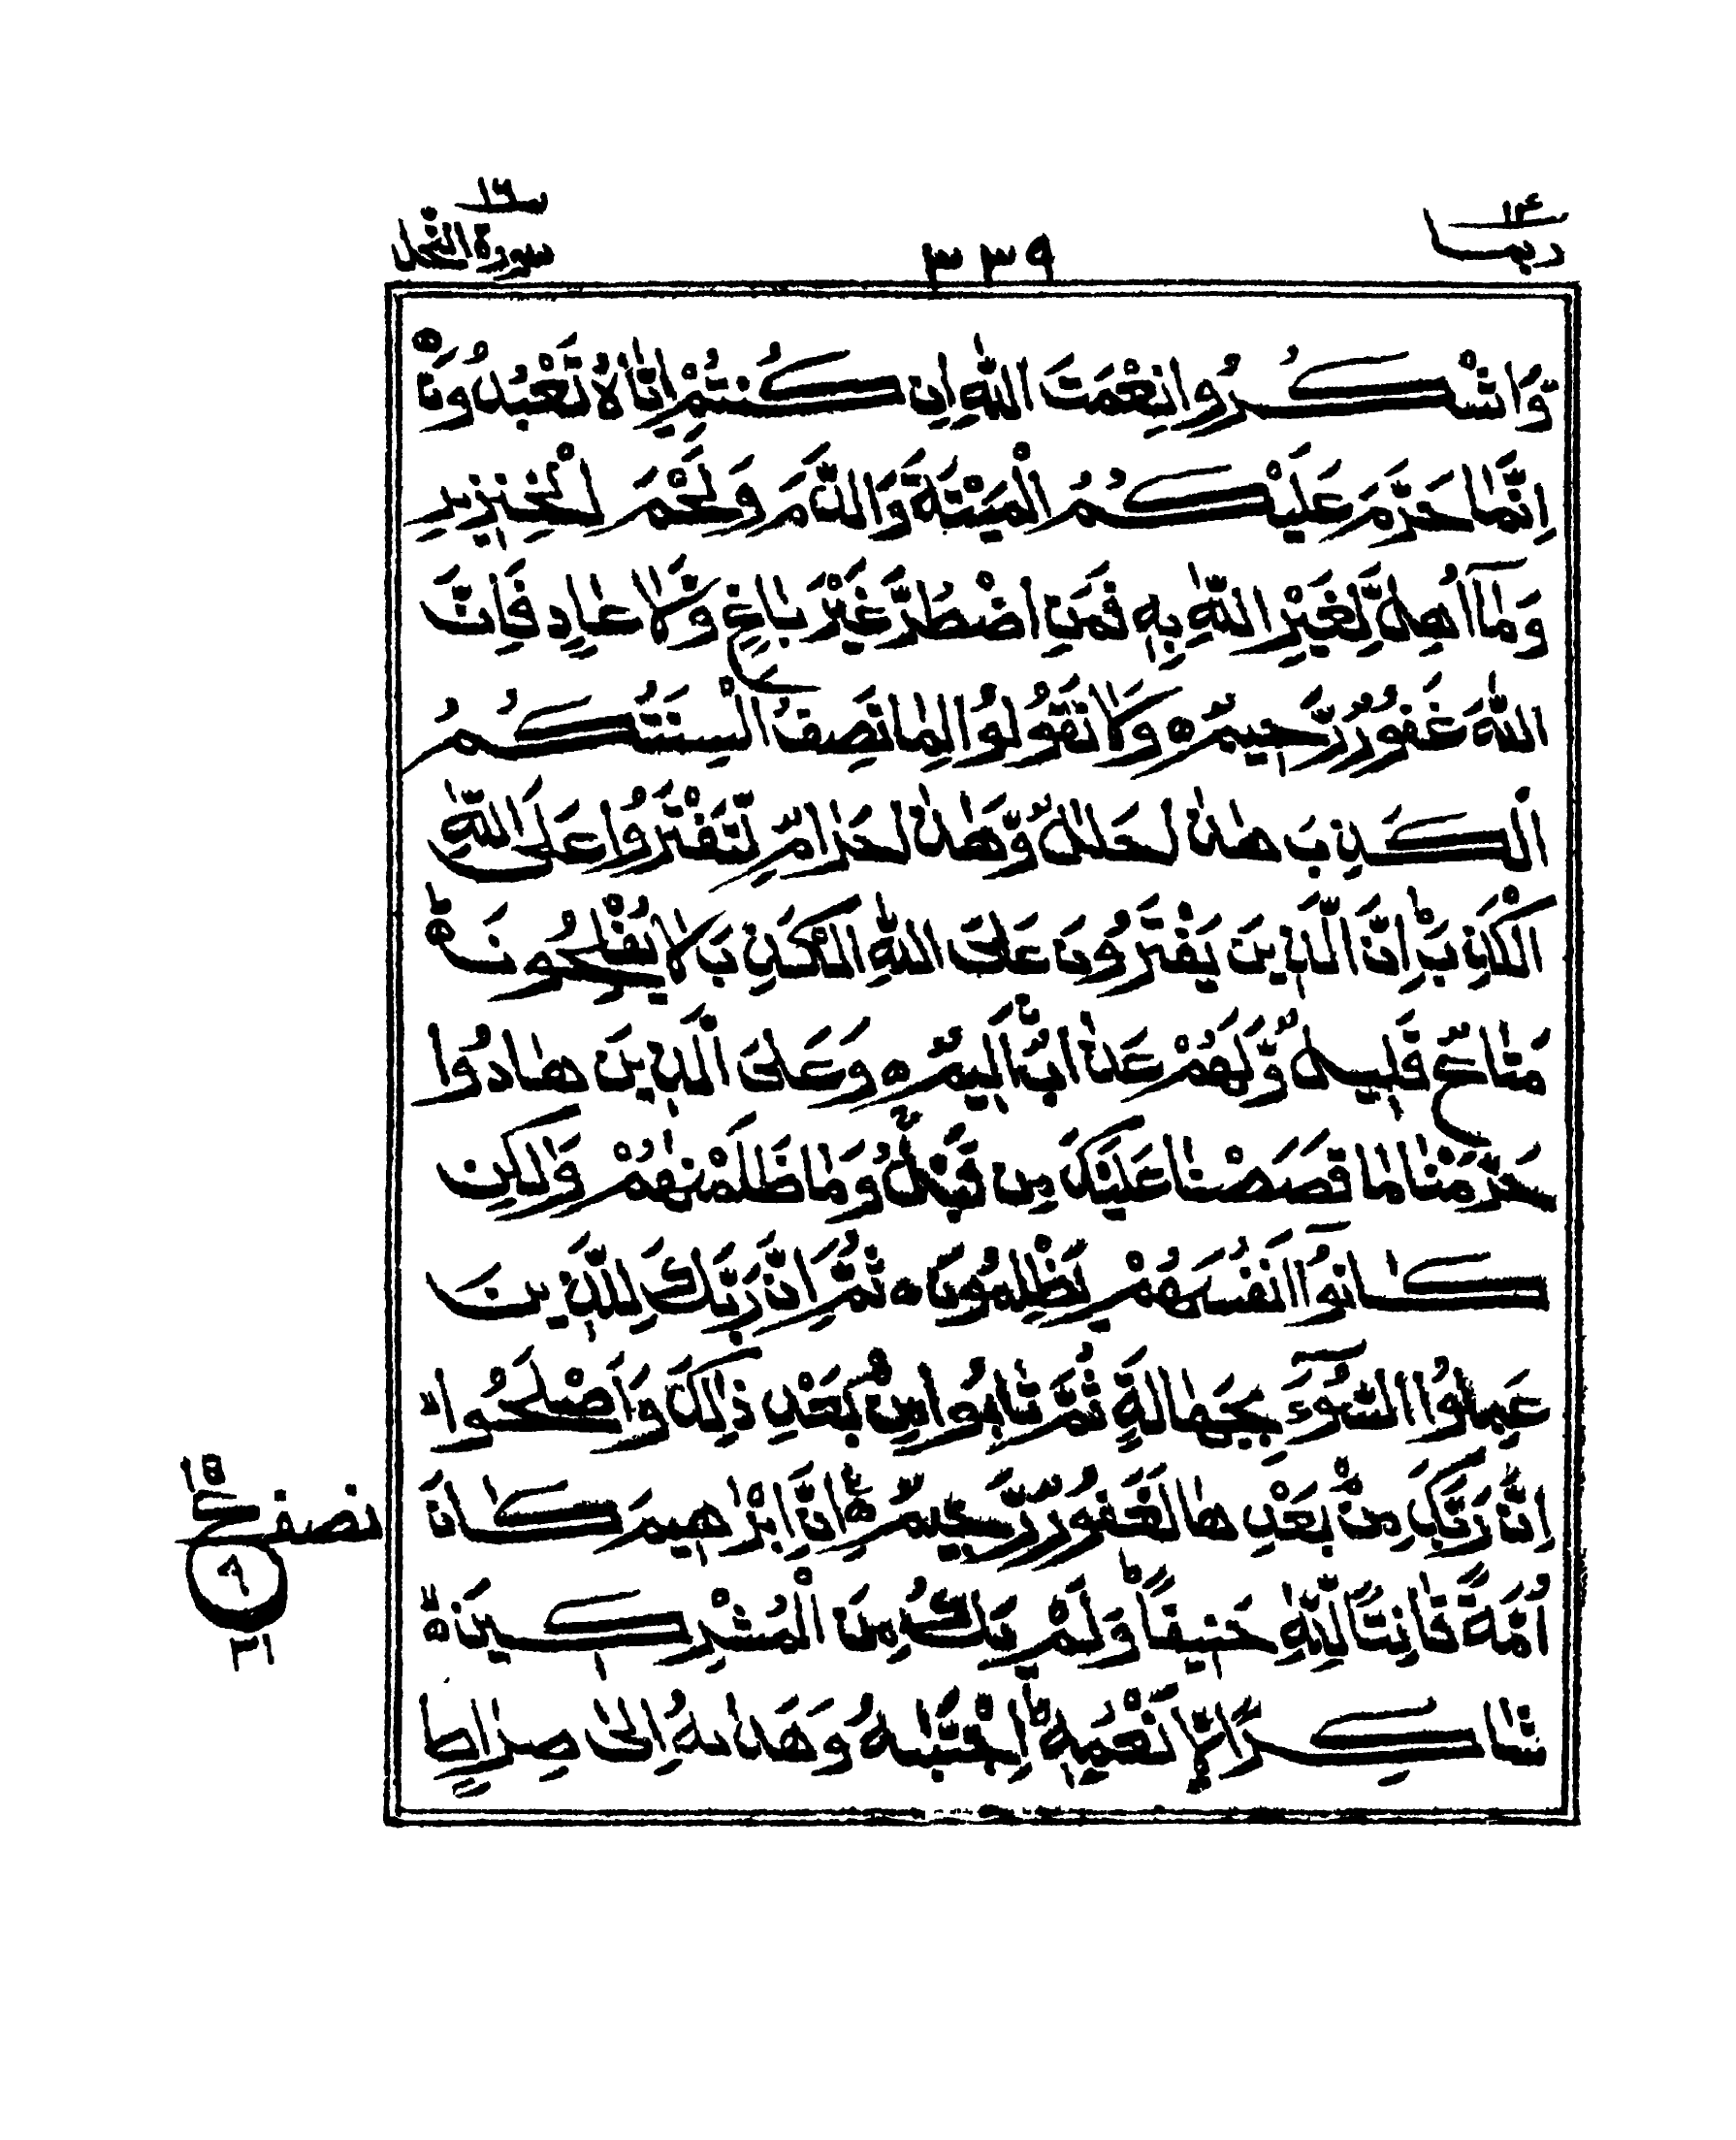 ربما ١٤
٣٣٩
سورة النحل ١٦
وَّاشْكُرُوا نِعْمَتَ اللّٰهِ اِنْ كُنْتُمْ اِيَّاهُ تَعْبُدُوْنَ
اِنَّمَا حَرَّمَ عَلَيْكُمُ الْمَيْتَةَ وَالدَّمَ وَلَحْمَ الْخِنْزِيْرِ
وَمَآ اُهِلَّ لِغَيْرِ اللّٰهِ بِهٖ فَمَنِ اضْطُرَّ غَيْرَ بَاغٍ وَّلَا عَادٍ فَاِنَّ
اللّٰهَ غَفُوْرٌ رَّحِيْمٌ ۝ وَلَا تَقُوْلُوْا لِمَا تَصِفُ اَلْسِنَتُكُمُ
الْكَذِبَ هٰذَا حَلٰلٌ وَّهٰذَا حَرَامٌ لِّتَفْتَرُوْا عَلَى اللّٰهِ
الْكَذِبَ ؕ اِنَّ الَّذِيْنَ يَفْتَرُوْنَ عَلَى اللّٰهِ الْكَذِبَ لَا يُفْلِحُوْنَ ۝ؕ
مَتَاعٌ قَلِيْلٌ وَّلَهُمْ عَذَابٌ اَلِيْمٌ ۝ وَعَلَى الَّذِيْنَ هَادُوْا
حَرَّمْنَا مَا قَصَصْنَا عَلَيْكَ مِنْ قَبْلُ ۚ وَمَا ظَلَمْنٰهُمْ وَلٰكِنْ
كَانُوْٓا اَنْفُسَهُمْ يَظْلِمُوْنَ ۝ ثُمَّ اِنَّ رَبَّكَ لِلَّذِيْنَ
عَمِلُوا السُّوْٓءَ بِجَهَالَةٍ ثُمَّ تَابُوْا مِنْۢ بَعْدِ ذٰلِكَ وَاَصْلَحُوْٓا ۙ
اِنَّ رَبَّكَ مِنْۢ بَعْدِهَا لَغَفُوْرٌ رَّحِيْمٌ ۝ اِنَّ اِبْرٰهِيْمَ كَانَ
اُمَّةً قَانِتًا لِّلّٰهِ حَنِيْفًا ؕ وَلَمْ يَكُ مِنَ الْمُشْرِكِيْنَ ۝ۙ
شَاكِرًا لِّاَنْعُمِهٖ ؕ اِجْتَبٰىهُ وَهَدٰىهُ اِلٰى صِرَاطٍ
نصف
ع
١٥
٩
٢١